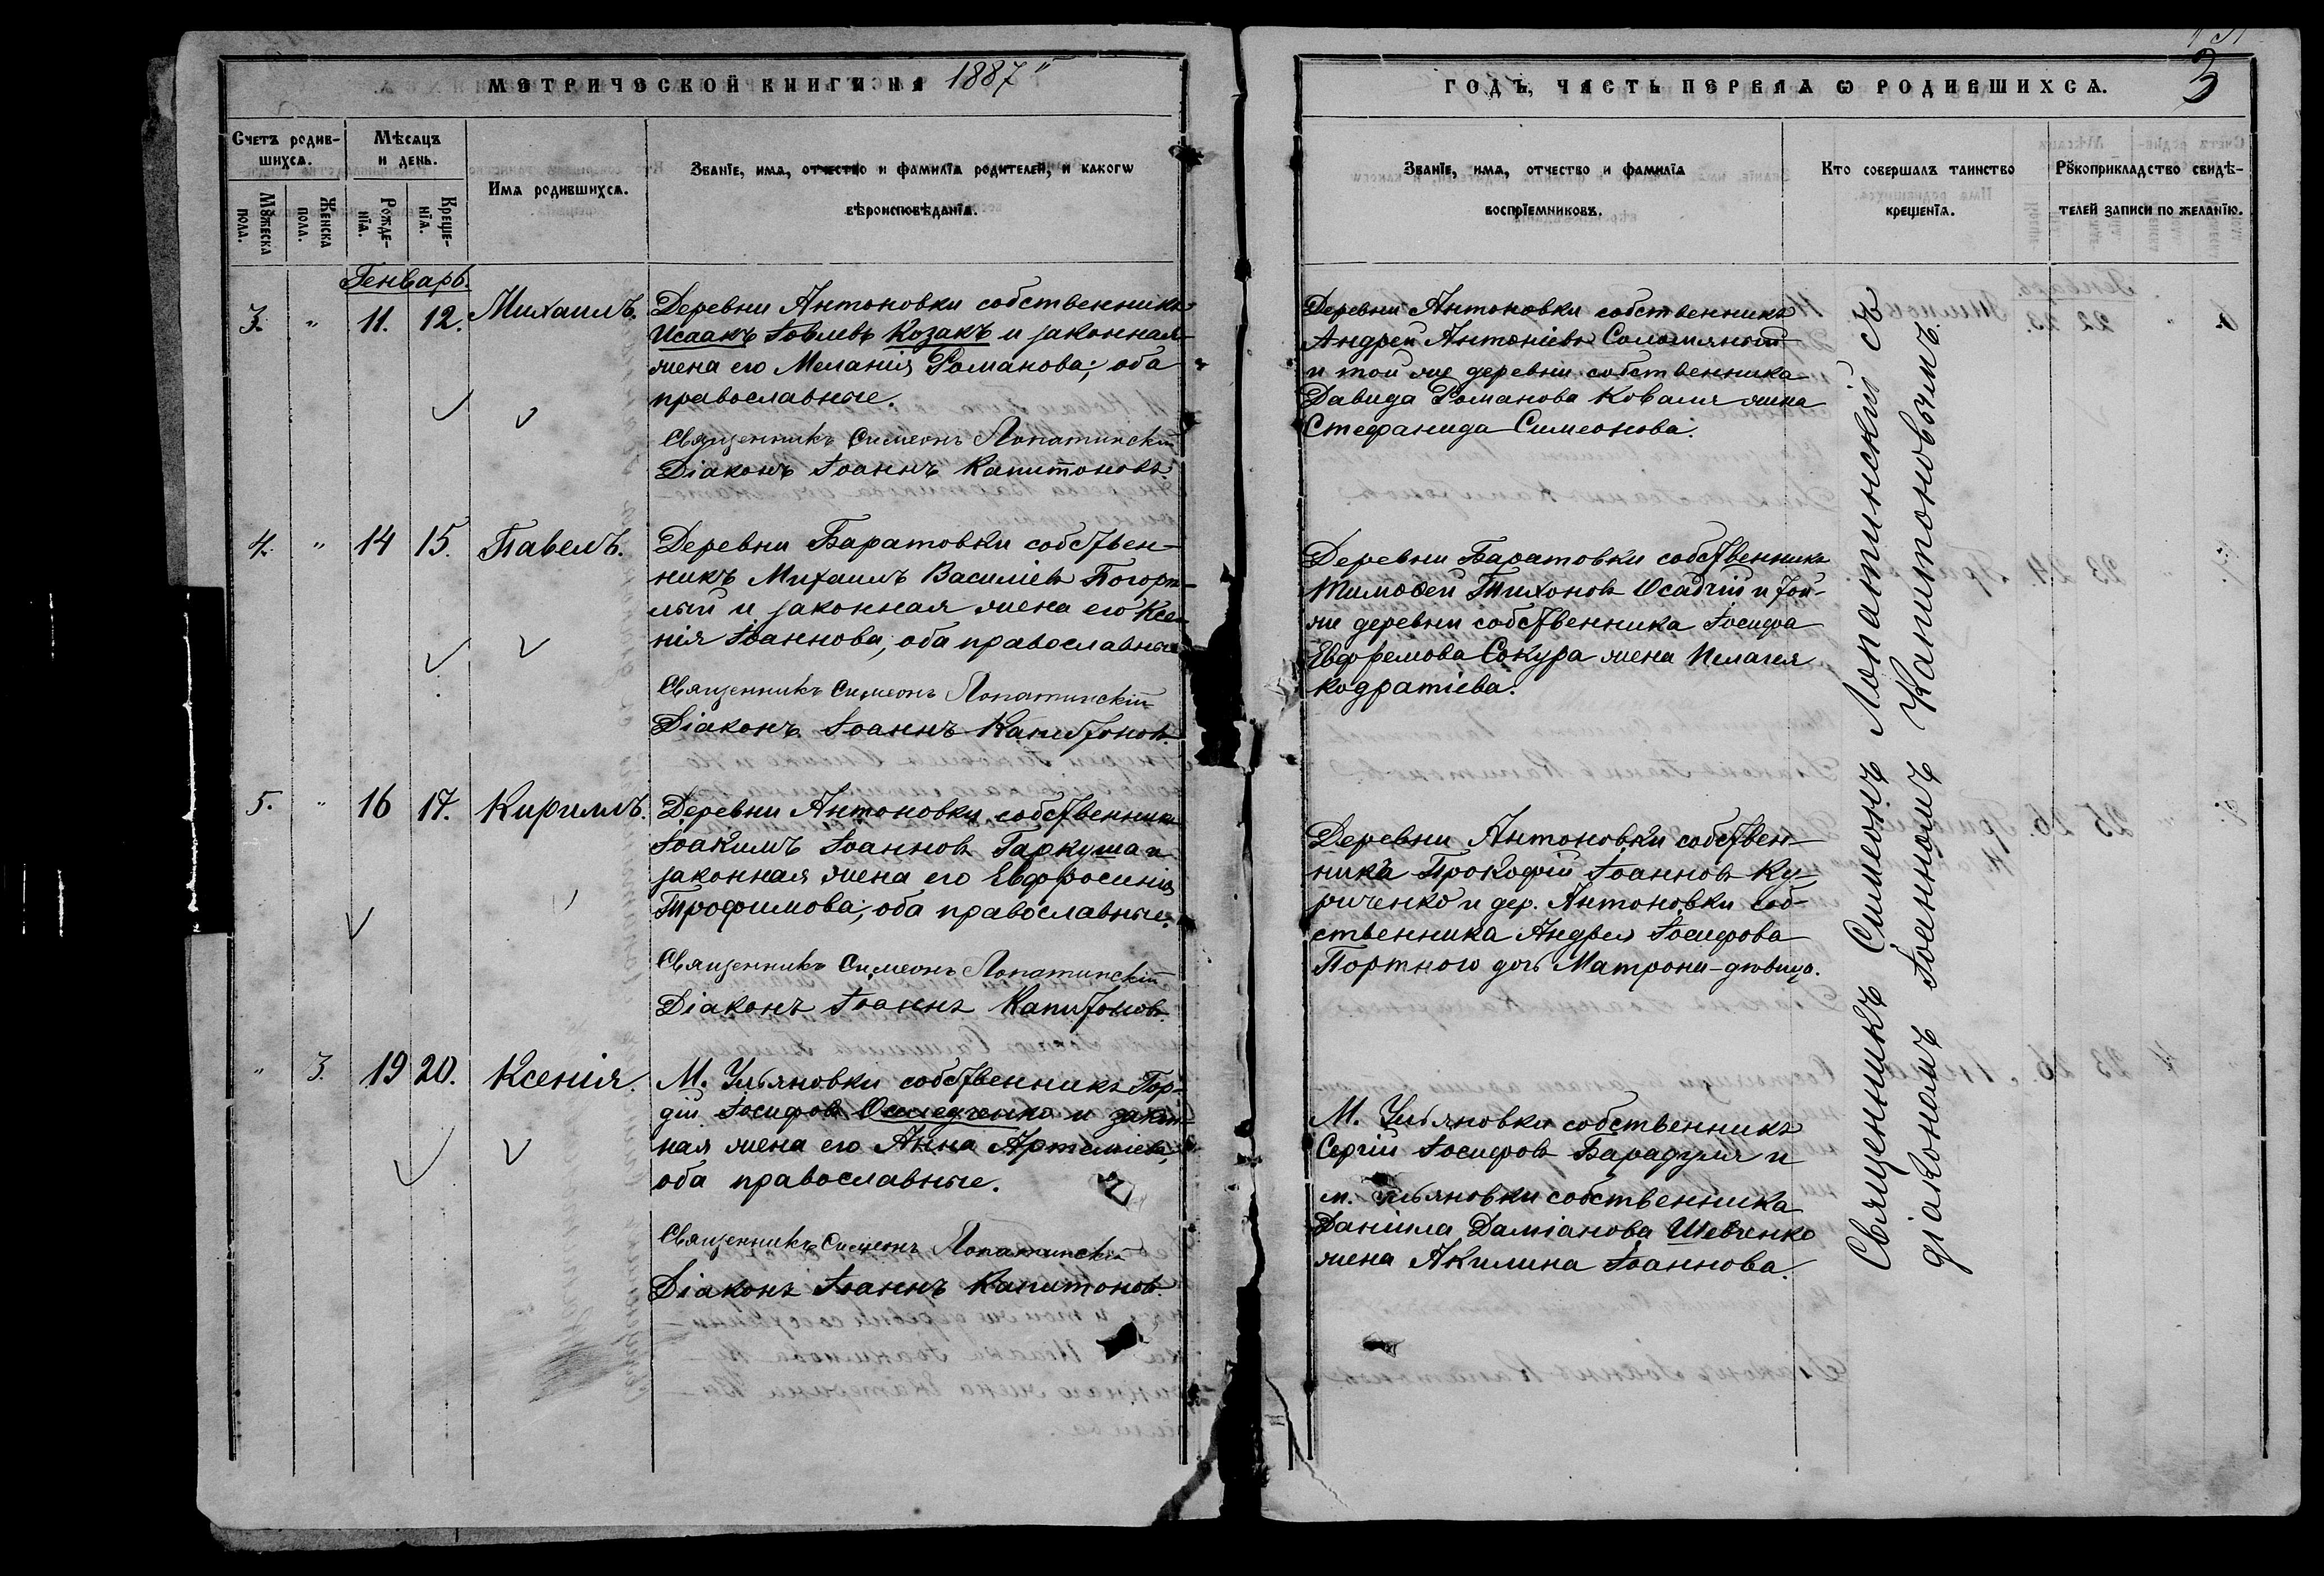 МЕТРИЧЕСКОЙ КНИГИ НА 1887
Счетъ родив-
шихсѧ.
Мѣсѧцъ
и день.
Имѧ родившихсѧ.
Званїе, имѧ, отчество и фамилїѧ родителей, и какогѡ
вѣроисповѣданїѧ.
Мꙋжеска
пола.
Женска
пола.
Рожде-
нїѧ.
Креще-
нїѧ.
Генварь.
3. " 11. 12. Михаилъ.
Деревни Антоновки собственникъ
Исаакъ Іовлевъ Козакъ и законная
жена его Меланія Романова, оба
православные.
Священникъ Симеонъ Лопатинскій
Діаконъ Іоаннъ Капитоновъ
4. " 14 15. Павелъ.
Деревни Баратовки собствен-
никъ Михаилъ Василіевъ Погорѣ-
лый и законная жена его Ксе-
нія Іоаннова, оба православные
Священникъ Симеонъ Лопатинскій
Діаконъ Іоаннъ Капитоновъ.
5. " 16 17. Кириллъ.
Деревни Антоновки собственникъ
Іоакимъ Іоанновъ Гаркуша и
законная жена его Евфросинія
Трофимова, оба православные.
Священникъ Симеонъ Лопатинскій
Діаконъ Іоаннъ Капитоновъ.
" 3. 19 20. Ксенія.
М. Ульяновки собственникъ Гор-
дій Іосифовъ и закон-
ная жена его Анна Артеміева,
оба православные.
Священникъ Симеонъ Лопатинскій
Діаконъ Іоаннъ Капитоновъ.
ГОДЪ, ЧАСТЬ ПЕРВАЯ Ѡ РОДИВШИХСѦ.
3
Званїе, имѧ, отчество и фамилїѧ
воспрїемниковъ.
Кто совершалъ таинство
крещенїѧ.
Рꙋкоприкладство свидѣ-
телей записи по желанїю.
Деревни Антоновки собственникъ
Андрей Антоніевъ Соломяный
и той же деревни собственника
Давида Романова Коваля жена
Стефанида Симеонова.
Деревни Баратовки собственникъ
Тимофей Тихоновъ Осадчій и той-
же деревни собственника Іосифа
Евфремова Сокура жена Пелагея
Кодратіева.
Деревни Антоновки собствен-
никъ Прокофій Іоанновъ Ку-
риченко и дер. Антоновки соб-
ственника Андрея Іосифова
Портного дочь Матрона - дѣвица.
М. Ульяновки собственникъ
Сергій Іосифовъ Барадуля и
м. Ульяновки собственника
Даніила Даміанова Шевченко
жена Акилина Іоаннова.
Священникъ Симеонъ Лопатинскій съ
діакономъ Іоанномъ Капитоновымъ.